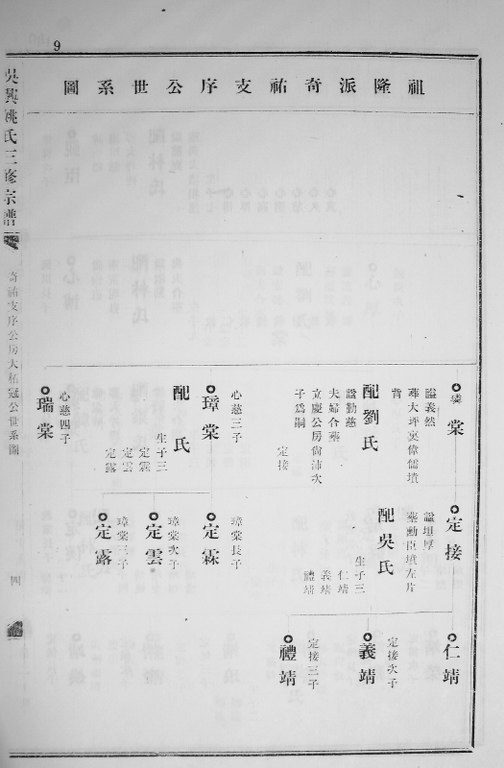 9
祖隆派奇祐支序公世系圖
吳興姚氏三修宗譜
奇祐支序公房大佑冠公世系圖
四
棠
諡義然
葬大坪莫偉儒墳
背
配劉氏
諡勤慈
夫婦合葬
立慶公房尚沛次
子爲嗣
定接
璋棠
心慈三子
配氏
生子三
定霖
定雲
定露
瑞棠
心慈四子
定接
諡坦厚
葬勳臣墳左片
配吳氏
生子三
仁靖
義靖
禮靖
定霖
璋棠長子
定雲
璋棠次子
定露
璋棠三子
仁靖
義靖
定接次子
禮靖
定接三子